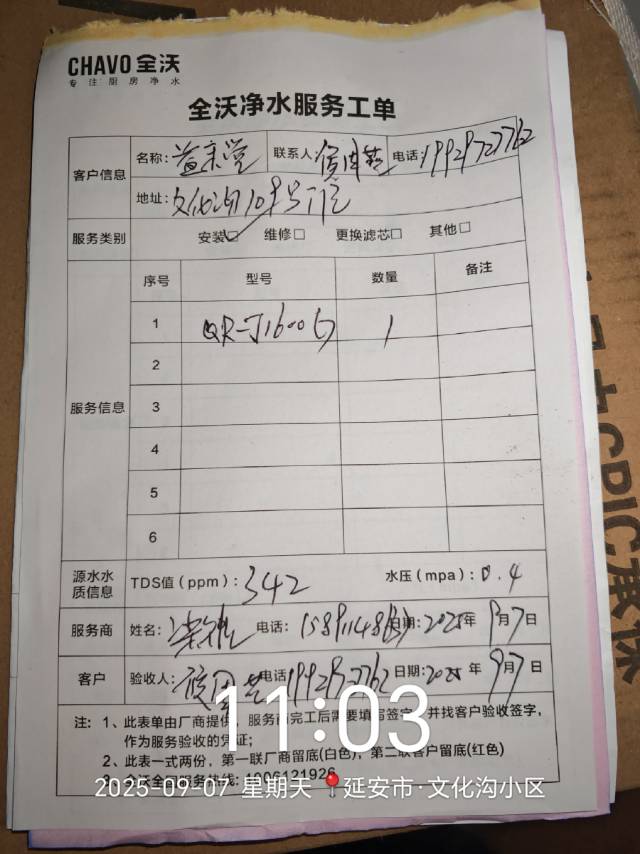 CHAVO 全沃
专注厨房净水
全沃净水服务工单
客户信息 名称: 益来堂 联系人 电话: 19929727762
地址: 文化沟109号
服务类别 安装☑ 维修□ 更换滤芯□ 其他□
服务信息 序号 型号 数量 备注
1 QR-J1600G 1
2
3
4
5
6
源水水质信息 TDS值(ppm): 342 水压(mpa): 0.4
服务商 姓名: 电话: 日期: 2025年 9月7日
客户 验收人: 电话 19929727762 日期: 2025年 9月7日
注: 1、此表单由厂商提供, 服务商完工后需要填写签字, 并找客户验收签字,
作为服务验收的凭证;
2、此表一式两份, 第一联厂商留底(白色), 第二联客户留底(红色)
3、全沃全国服务热线: 4006121926
11:03
2025-09-07 星期天 延安市·文化沟小区
CPIC